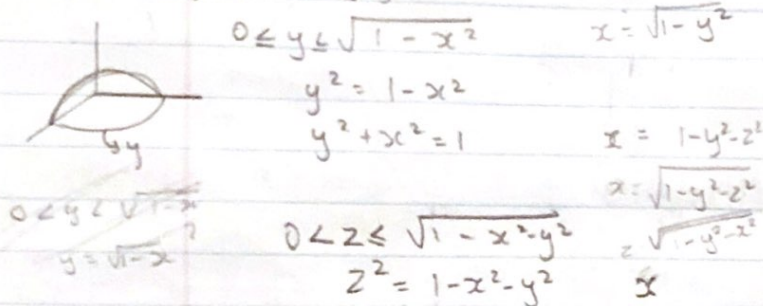 0 ≤ y ≤ √(1 - x²)
y² = 1 - x²
y² + x² = 1
x = √(1 - y²)
x = 1 - y² - z²
x = √(1 - y² - z²)
= √(1 - y² - x²)
x
y
0 < y < √(1 - x²)
y = √(1 - x²)
0 < z ≤ √(1 - x² - y²)
z² = 1 - x² - y²